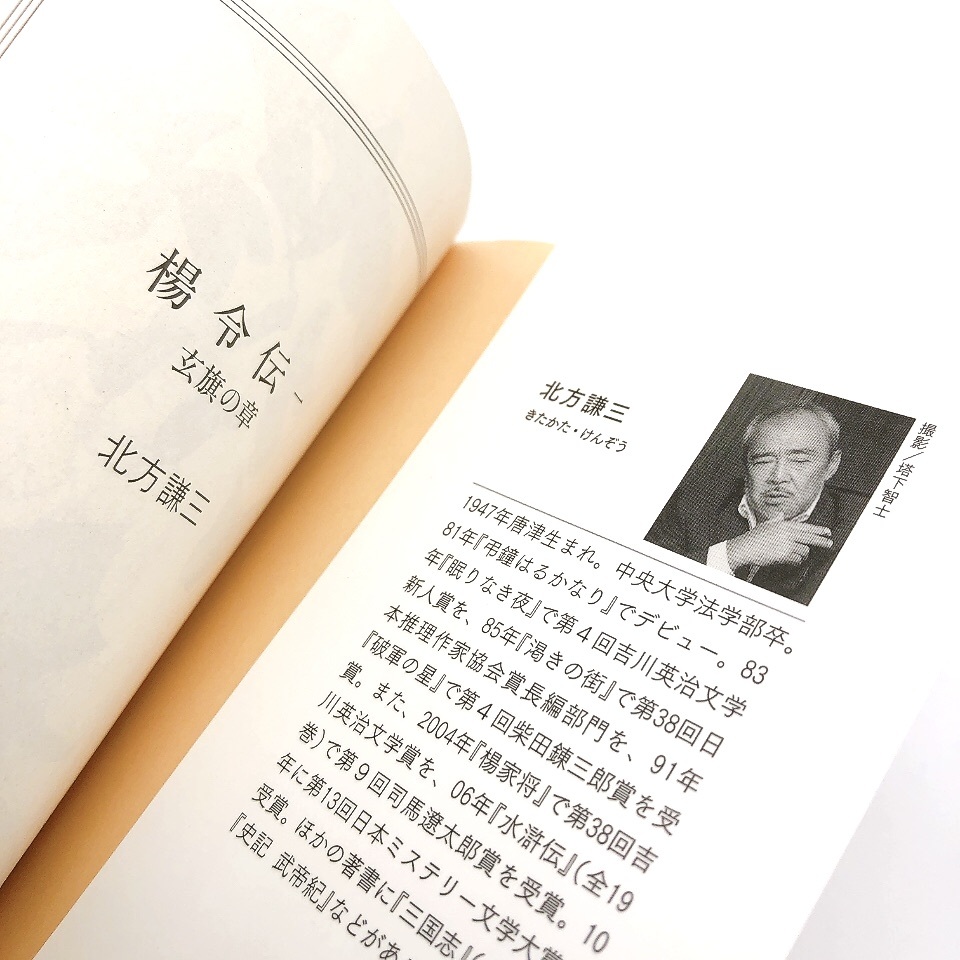 楊令伝 一
玄旗の章
北方謙三
北方謙三
きたかた・けんぞう
撮影／塔下智士
1947年唐津生まれ。中央大学法学部卒。
81年『弔鐘はるかなり』でデビュー。83
年『眠りなき夜』で第4回吉川英治文学
新人賞を、85年『渇きの街』で第38回日
本推理作家協会賞長編部門を、91年
『破軍の星』で第4回柴田錬三郎賞を受
賞。また、2004年『楊家将』で第38回吉
川英治文学賞を、06年『水滸伝』(全19
巻)で第9回司馬遼太郎賞を受賞。10
年に第13回日本ミステリー文学大賞
受賞。ほかの著書に『三国志』(
『史記 武帝紀』などがあ